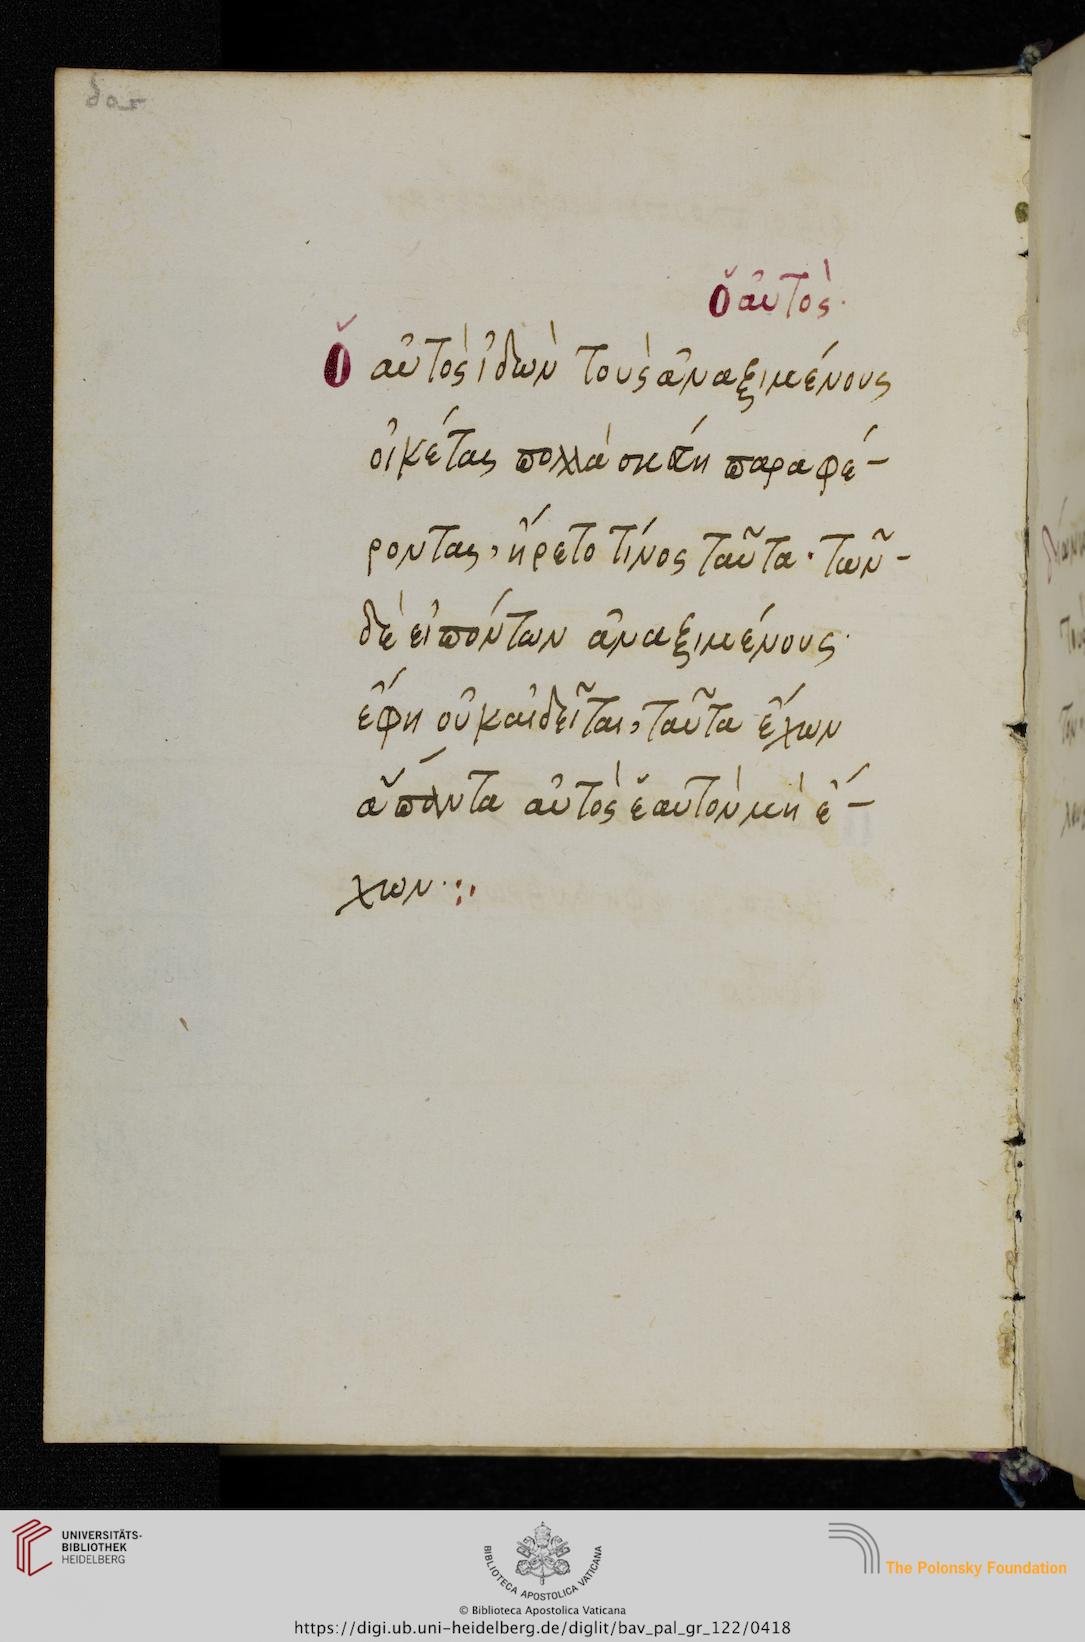 ὁ αὐτὸς·
Ὁ αὐτὸς ἰδὼν τοὺς ἀναξιμένους
οἰκέτας πολλὰ σκεύη παραφέ-
ροντας, ἤρετο τίνος ταῦτα· τῶν-
δὲ εἰπόντων ἀναξιμένους·
ἔφη οὐκ αἰδεῖται, ταῦτα ἔχων
ἅπαντα αὐτὸς ἑαυτὸν μὴ ἔ-
χων·:,
UNIVERSITÄTS-
BIBLIOTHEK
HEIDELBERG
BIBLIOTECA APOSTOLICA VATICANA
The Polonsky Foundation
© Biblioteca Apostolica Vaticana
https://digi.ub.uni-heidelberg.de/diglit/bav_pal_gr_122/0418